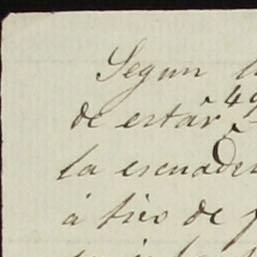 Segun
de estar 49
la escuader
á tiro de